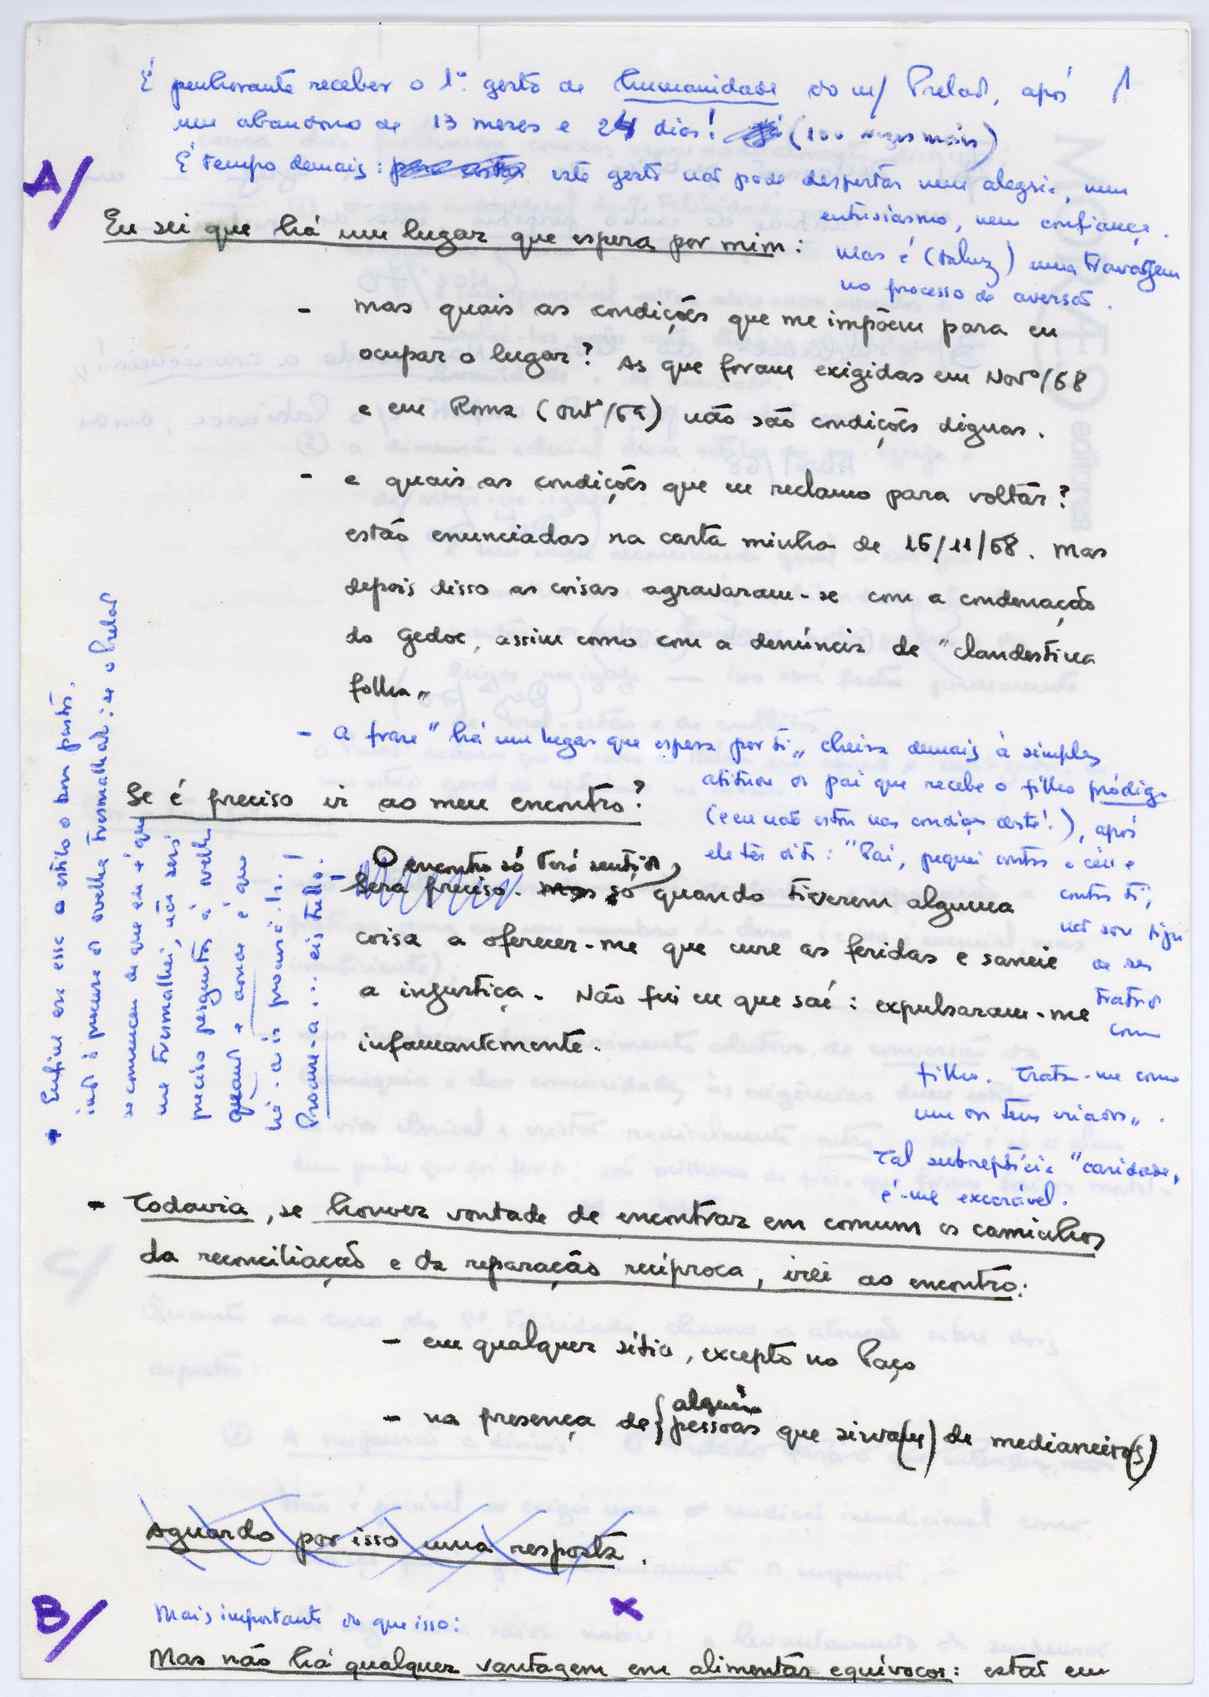 É penhorante receber o 1º gesto de humanidade do m/ Prelado, após 1
um abandono de 13 meses e 24 dias! (100 vezes mais)
A/
É tempo demais: este gesto não pode despertar nem alegria, nem
entusiasmo, nem confiança.
mas é (talvez) uma travagem
no processo de aversão.
Eu sei que há um lugar que espera por mim:
- mas quais as condições que me impõem para eu
ocupar o lugar? As que foram exigidas em Novº/68
e em Roma (Outº/69) não são condições dignas.
- e quais as condições que eu reclamo para voltar?
estão enunciadas na carta minha de 16/11/68. Mas
depois disso as coisas agravaram-se com a condenação
do Gedoc, assim como com a denúncia de "clandestina
folha"
- A frase "há um lugar que espera por ti" cheira demais à simples
atitude do pai que recebe o filho pródigo
(e eu não estou nas condições deste!), após
ele ter dito: "Pai, pequei contra o céu e
contra ti;
não sou digno
de ser
tratado
como
filho. Trata-me como
um dos teus criados".
Tal subreptícia "caridade"
é-me execrável.
Se é preciso ir ao meu encontro?
O encontro só terá sentido,
Será preciso. Mas só quando tiverem alguma
coisa a oferecer-me que cure as feridas e saneie
a injustiça. Não fui eu que saí: expulsaram-me
infamantemente.
+ Enfim era esse o estilo o bom pastor,
indo à procura da ovelha tresmalhada: se o Prelado
se convenceu de que eu é que
me tresmalhei, não será
preciso perguntar à ovelha
quando e aonde é que
há-de ir procurá-la.
Procure-a... eis tudo!
- Todavia, se houver vontade de encontrar em comum os caminhos
da reconciliação e da reparação recíproca, irei ao encontro:
- em qualquer sítio, excepto no Paço
- na presença de { alguém
pessoas que sirva(m) de medianeiro(s)
Aguardo por isso uma resposta.
B/
Mais importante do que isso:
x
Mas não há qualquer vantagem em alimentar equívocos: estar em